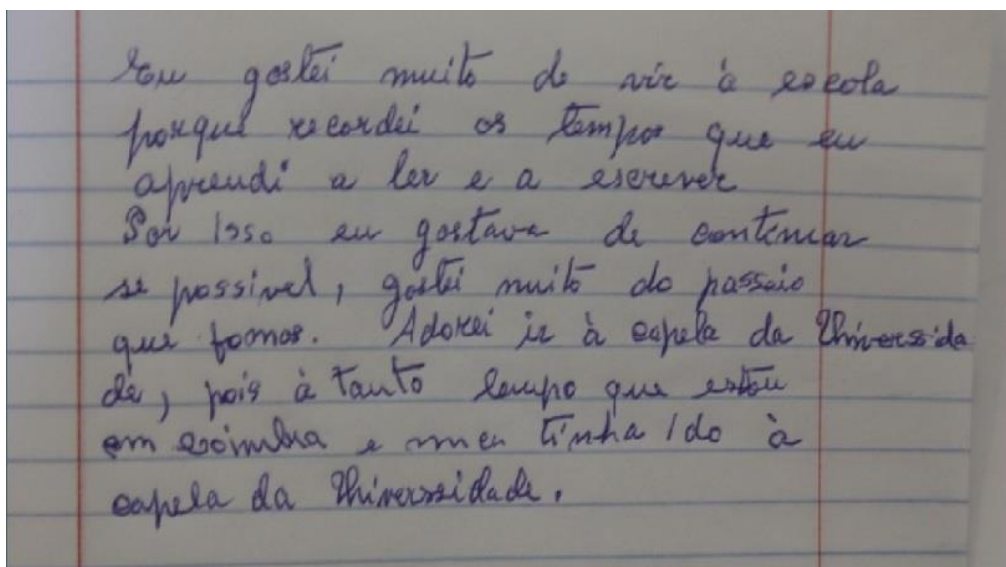 Eu gostei muito de vir à escola
porque recordei os tempos que eu
aprendi a ler e a escrever
Por Isso eu gostava de continuar
se possivel, gostei muito do passeio
que fomos. Adorei ir à capela da Universida
de, pois à tanto tempo que estou
em coimbra e nunca tinha Ido à
capela da Universsidade.